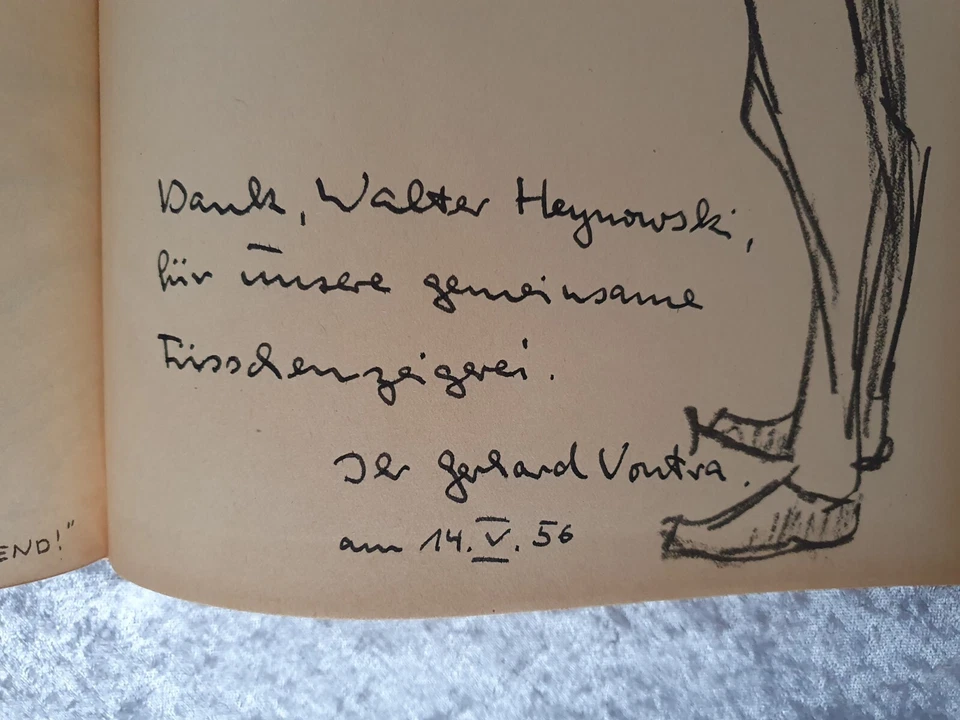 Dank, Walter Heynowski,
für unsere gemeinsame
Füsschenzeigerei.
Ihr Gerhard Vontra.
am 14. V. 56
END!"